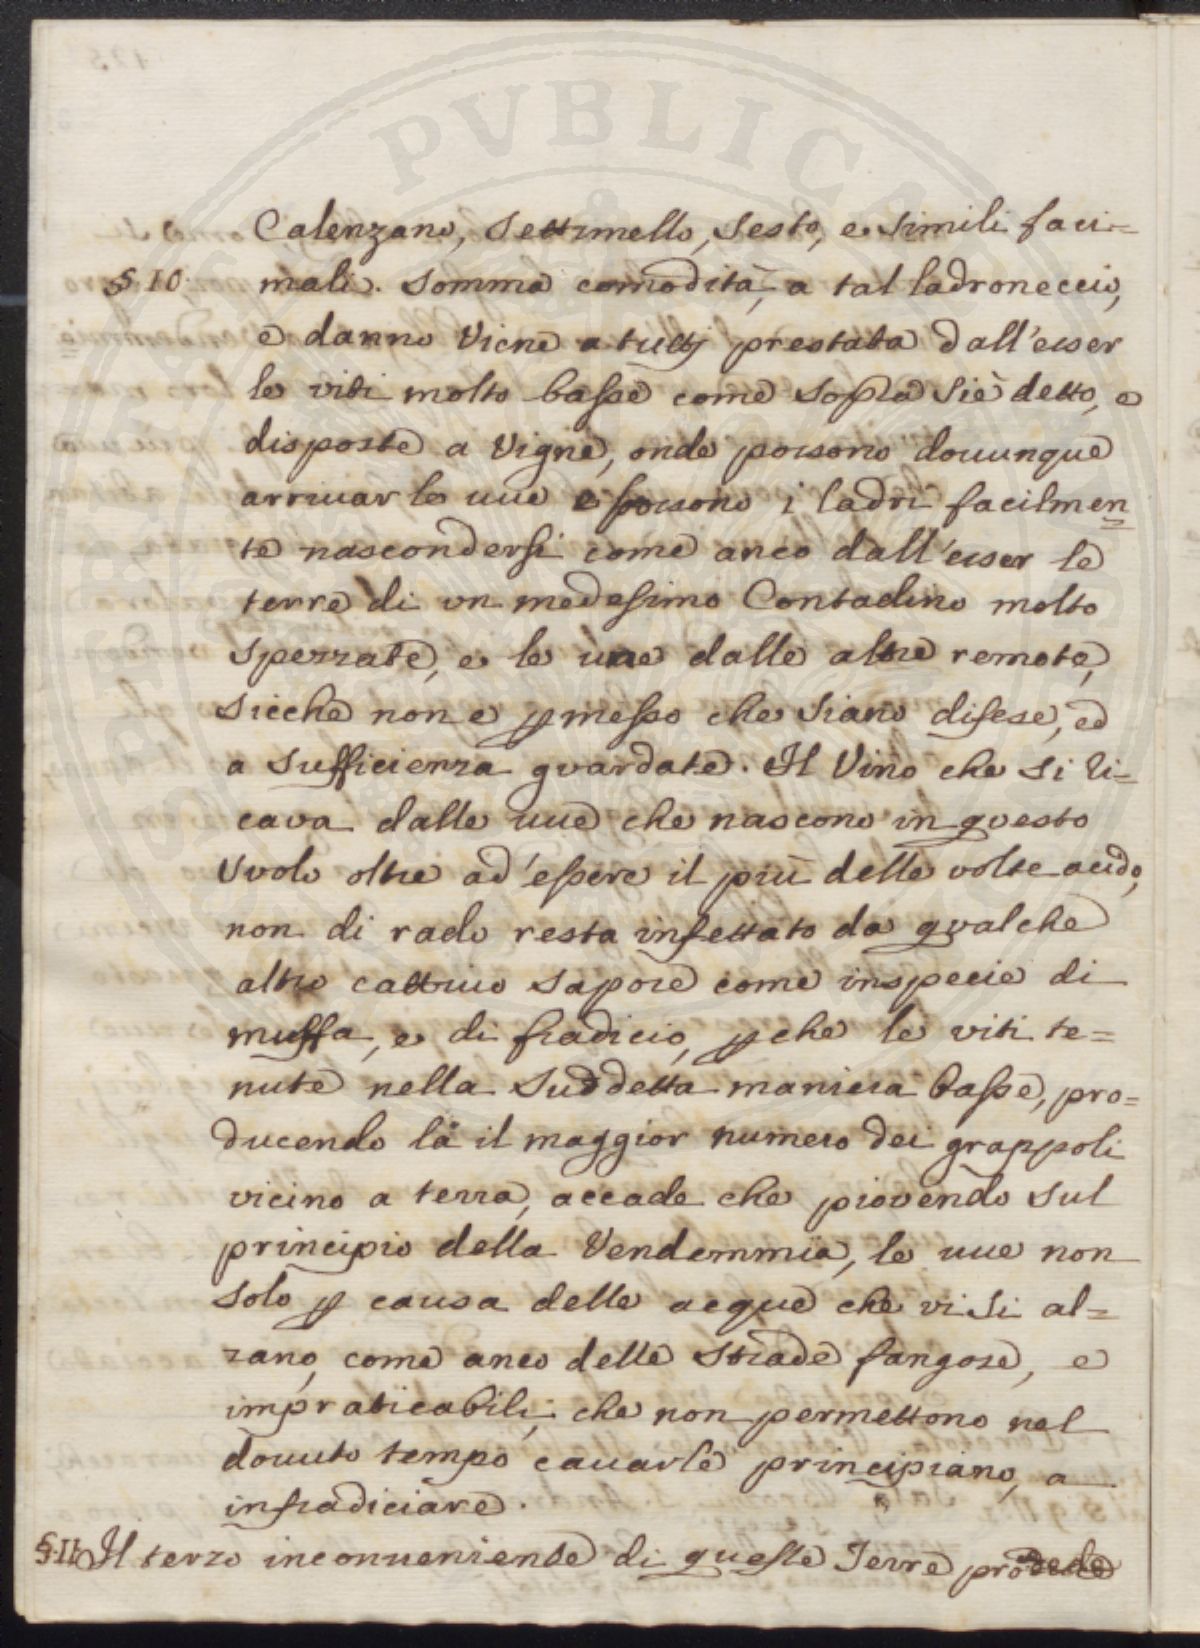 PVBLICA
Calenzano, Settimello, Sesto, e Simili faci=
§. 10. mali. Somma comodità, a tal ladroneccio,
e danno Viene a tuttj prestata dall'esser
le viti molto basse come sopra Siè detto, e
disposte a Vigne, onde possono douunque
arriuar le uue e possono i ladri facilmen
te nascondersi come anco dall'esser le
terre di un medesimo Contadino molto
spezzate, e le une dalle altre remote,
Sicche non e ꝑmesso che Siano difese, ed
a sufficienza guardate. Il Vino che si ri=
cava dalle uue che nascono in questo
Suolo oltre ad'essere il più delle volte acido,
non di rado resta infettato da qualche
altro cattiuo sapore come inspecie di
muffa, e di fradicio, ꝑche le viti te=
nute nella Suddetta maniera basse, pro=
ducendo là il maggior numero dei grappoli
vicino a terra, accade che piovendo sul
principio della Vendemmia, le uue non
solo ꝑ causa delle acque che vi si al=
zano, come anco delle strade fangose, e
impraticabili, che non permettono nel
douuto tempo cauarle principiano, a
infradiciare.
§. 11. Il terzo inconueniente di queste Terre procede